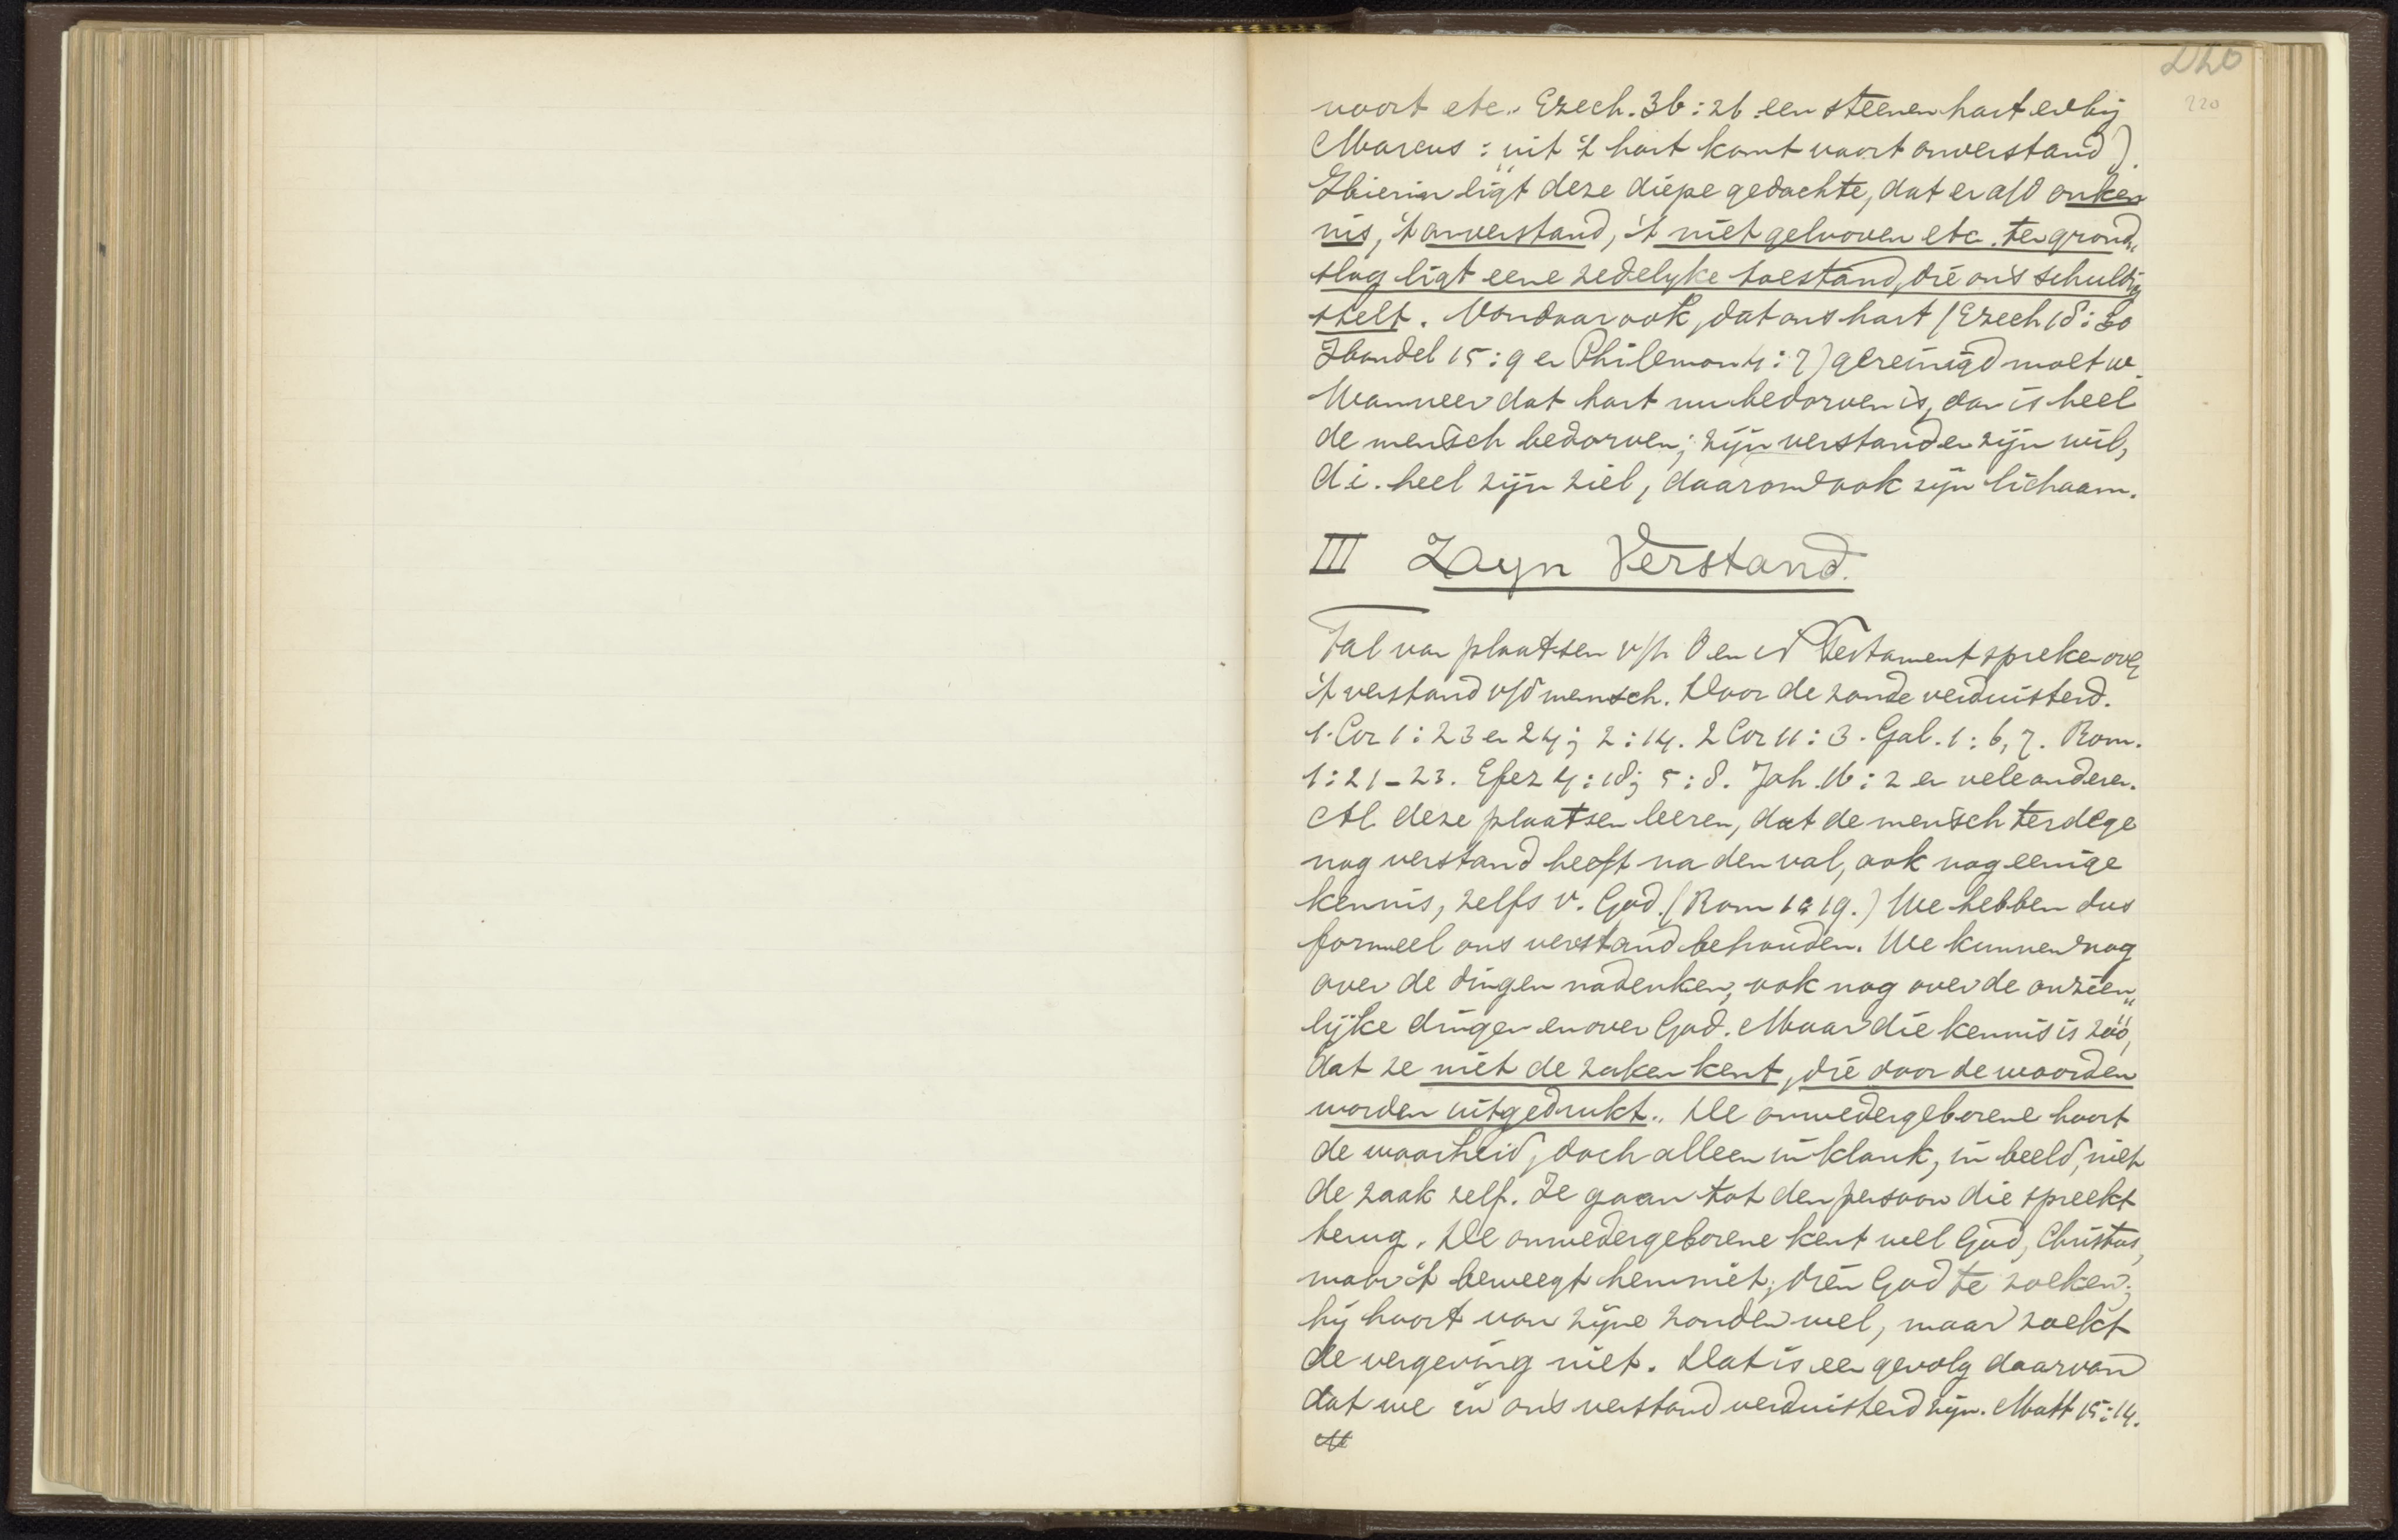 220
220
voort etc. Ezech. 36:26 een steenen hart en bij
Marcus: "uit 't hart komt voort onverstand").
Hierin ligt deze diepe gedachte, dat er a/d onken
nis, 't onverstand, 't niet gelooven etc. ten grond„
slag ligt eene zedelyke toestand, die ons schuldig
stelt. Vandaar ook, dat ons hart (Ezech 18:30
Handel 15:9 en Philemon 4:7) gereinigd moet w.
Wanneer dat hart nu bedorven is, dan is heel
de mensch bedorven; zijn verstand en zijn wil,
d.i. heel zijn ziel, daarom ook zijn lichaam.
III Zyn Verstand.
Tal van plaatsen v/h O en N Testament spreken over
't verstand v/d mensch. Door de zonde verduisterd.
1. Cor 1:23 en 24; 2:14. 2 Cor 11:3. Gal. 1:6,7. Rom.
1:21-23. Efez 4:18; 5:8. Joh. 16:2 en vele anderen.
Al deze plaatsen leeren, dat de mensch terdege
nog verstand heeft na den val, ook nog eenige
kennis, zelfs v. God. (Rom 1:19.) We hebben dus
formeel ons verstand behouden. We kunnen nog
over de dingen nadenken, ook nog over de onzien„
lijke dingen en over God. Maar die kennis is zóó,
dat ze niet de zaken kent, die door de woorden
worden uitgedrukt. De onwedergeborene hoort
de waarheid, doch alleen in klank, in beeld, niet
de zaak zelf. Ze gaan tot den persoon die spreekt
terug. De onwedergeborene kent wel God, Christus,
maar 't beweegt hem niet, dien God te zoeken;
hij hoort van zijne zonden wel, maar zoekt
de vergeving niet. Dat is een gevolg daarvan
dat we in ons verstand verduisterd zijn. Matt 15:14.